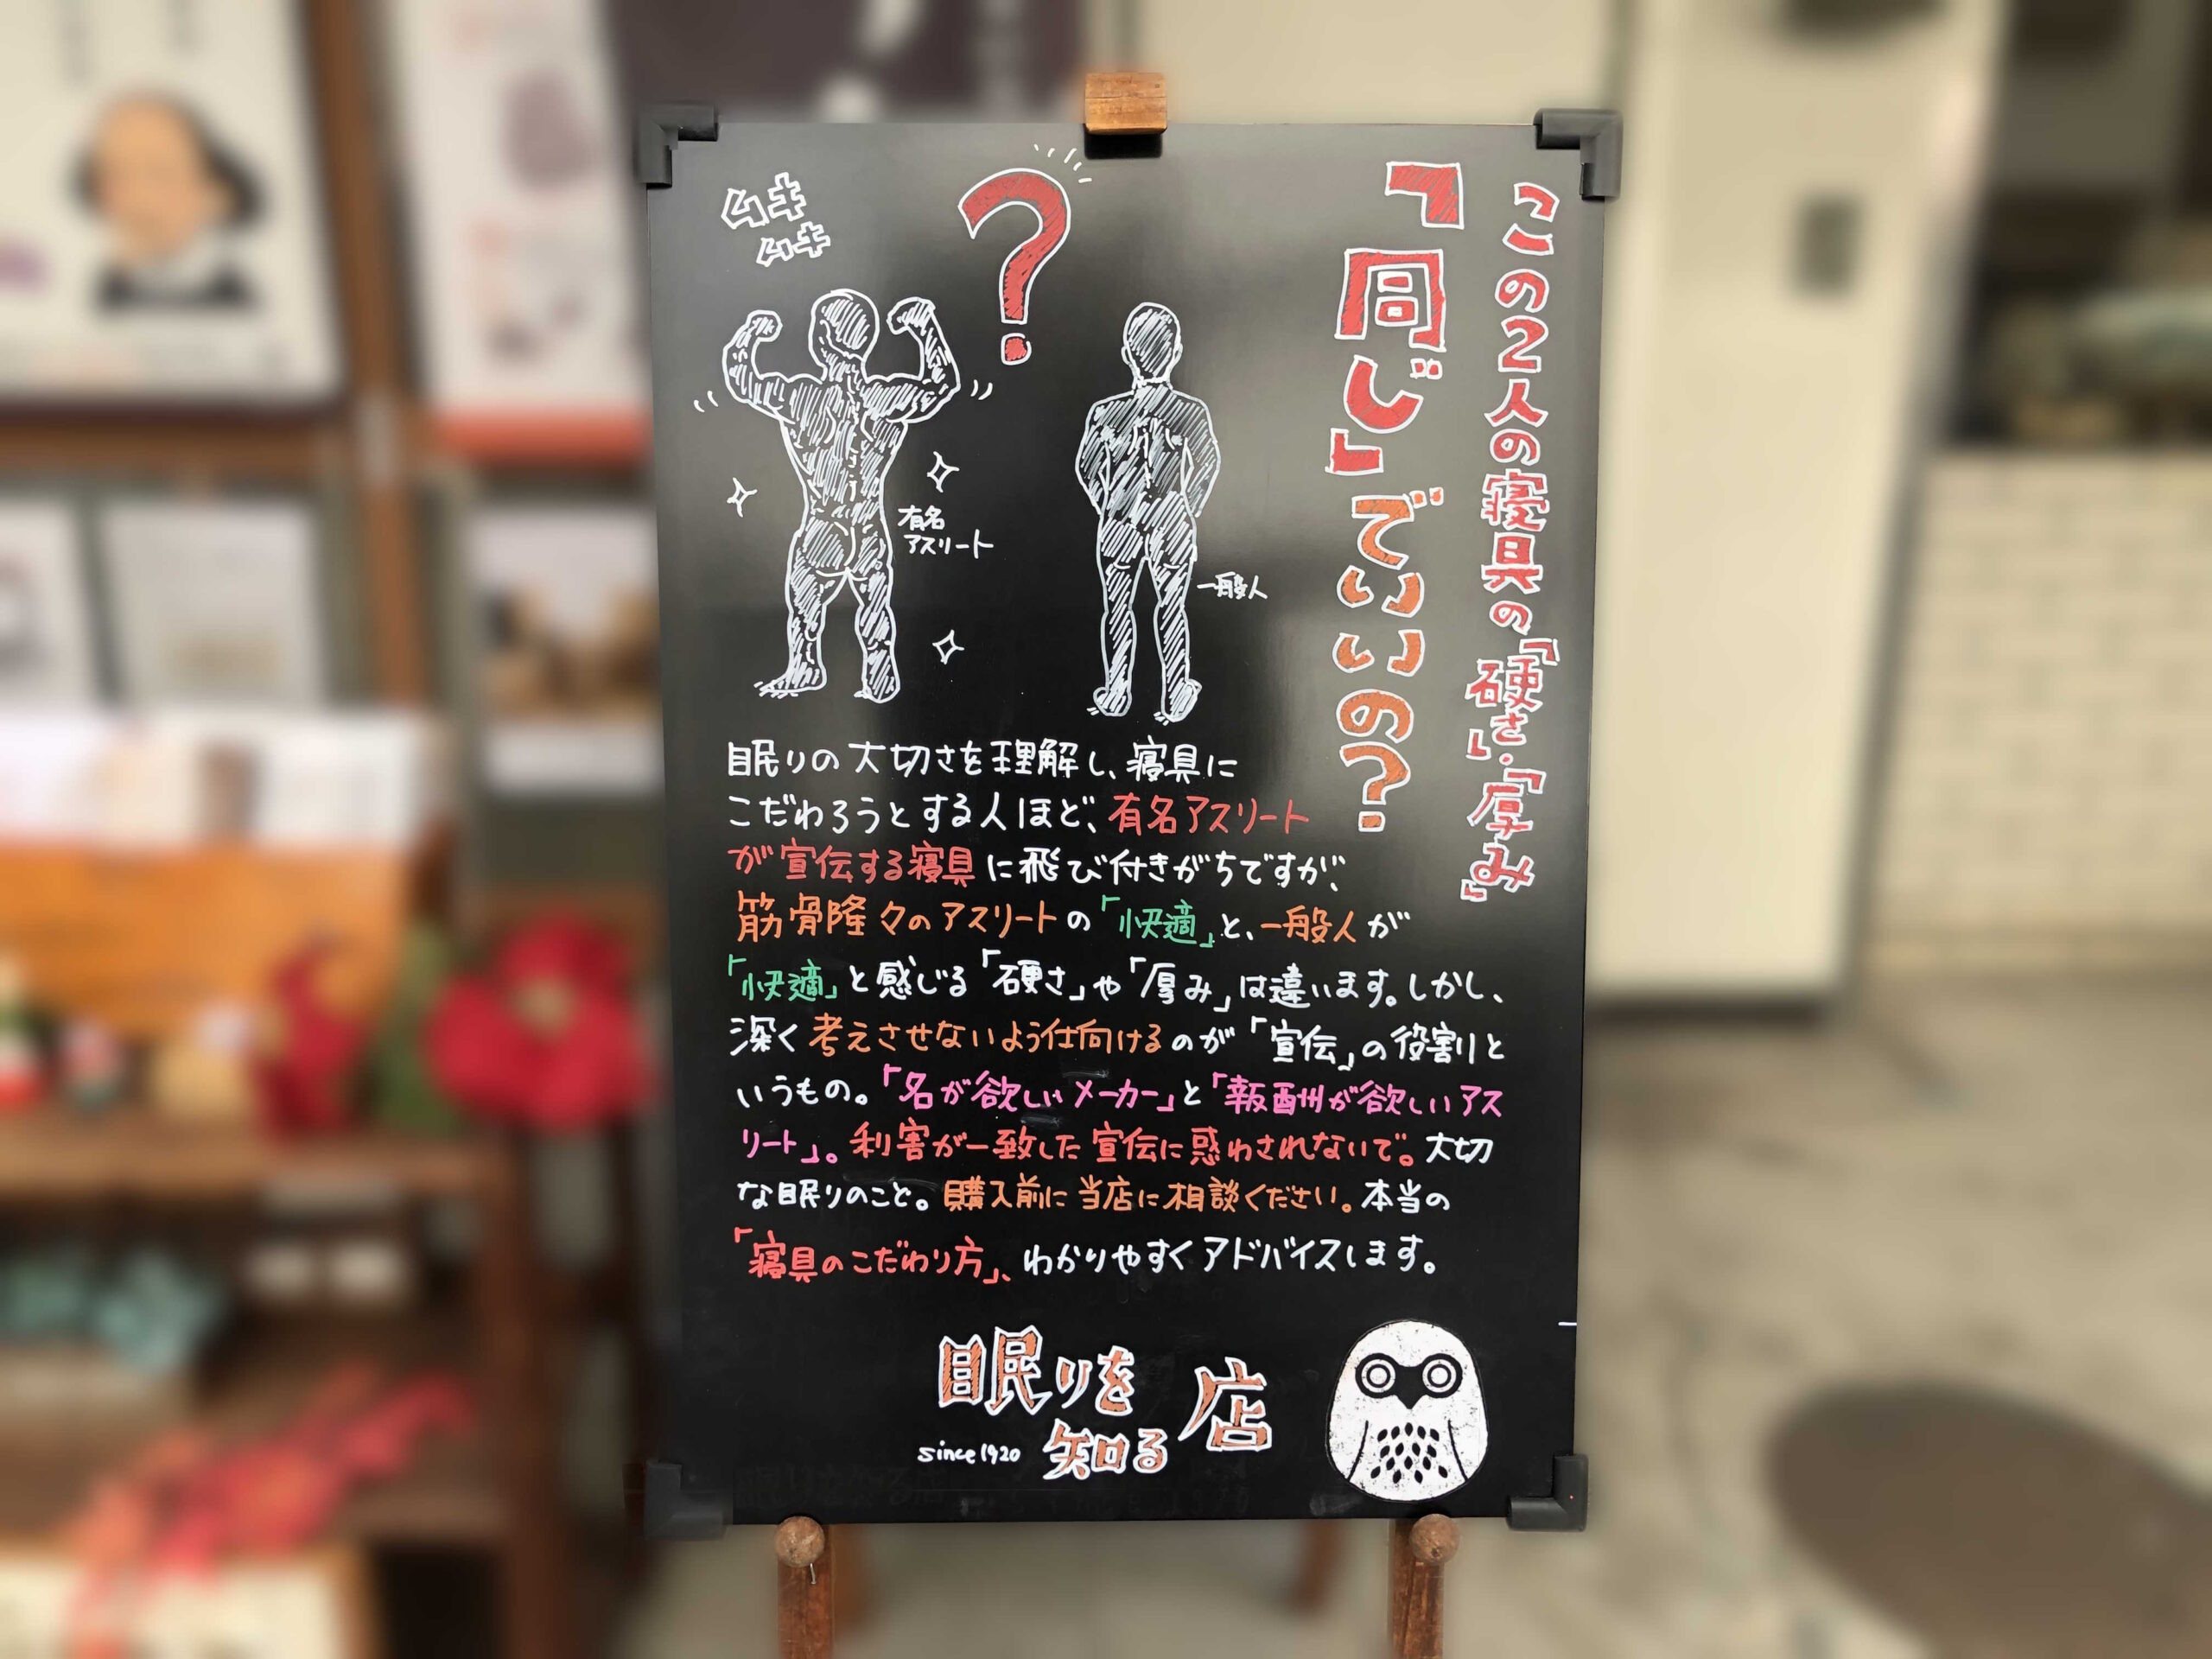 この2人の寝具の「硬さ」・「厚み」
「同じ」でいいの?
ムキ
ムキ
?
有名
アスリート
一般人
眠りの大切さを理解し、寝具に
こだわろうとする人ほど、有名アスリート
が宣伝する寝具に飛び付きがちですが、
筋骨隆々のアスリートの「快適」と、一般人が
「快適」と感じる「硬さ」や「厚み」は違います。しかし、
深く考えさせないよう仕向けるのが「宣伝」の役割と
いうもの。「名が欲しいメーカー」と「報酬が欲しいアス
リート」。利害が一致した宣伝に惑わされないで。大切
な眠りのこと。購入前に当店に相談ください。本当の
「寝具のこだわり方」、わかりやすくアドバイスします。
眠りを
知る
店
since 1920